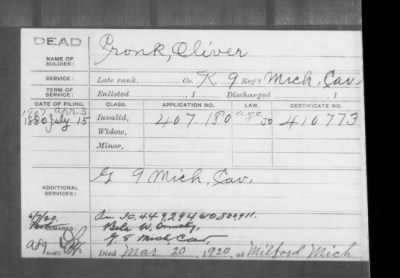 DEAD
NAME OF SOLDIER: Pronk, Oliver
SERVICE: Late rank, Co. K, 9 Reg't Mich. Cav.
TERM OF SERVICE: Enlisted , 1 Discharged , 1
DATE OF FILING. CLASS. APPLICATION NO. LAW. CERTIFICATE NO.
1907 apr 3 age
1880 July 15 Invalid, 407.180 410773
Widow,
Minor,
ADDITIONAL SERVICES: G 9 Mich. Cav.
REMARKS
Mich Cav
Died Mar 20, 1920, at Milford Mich